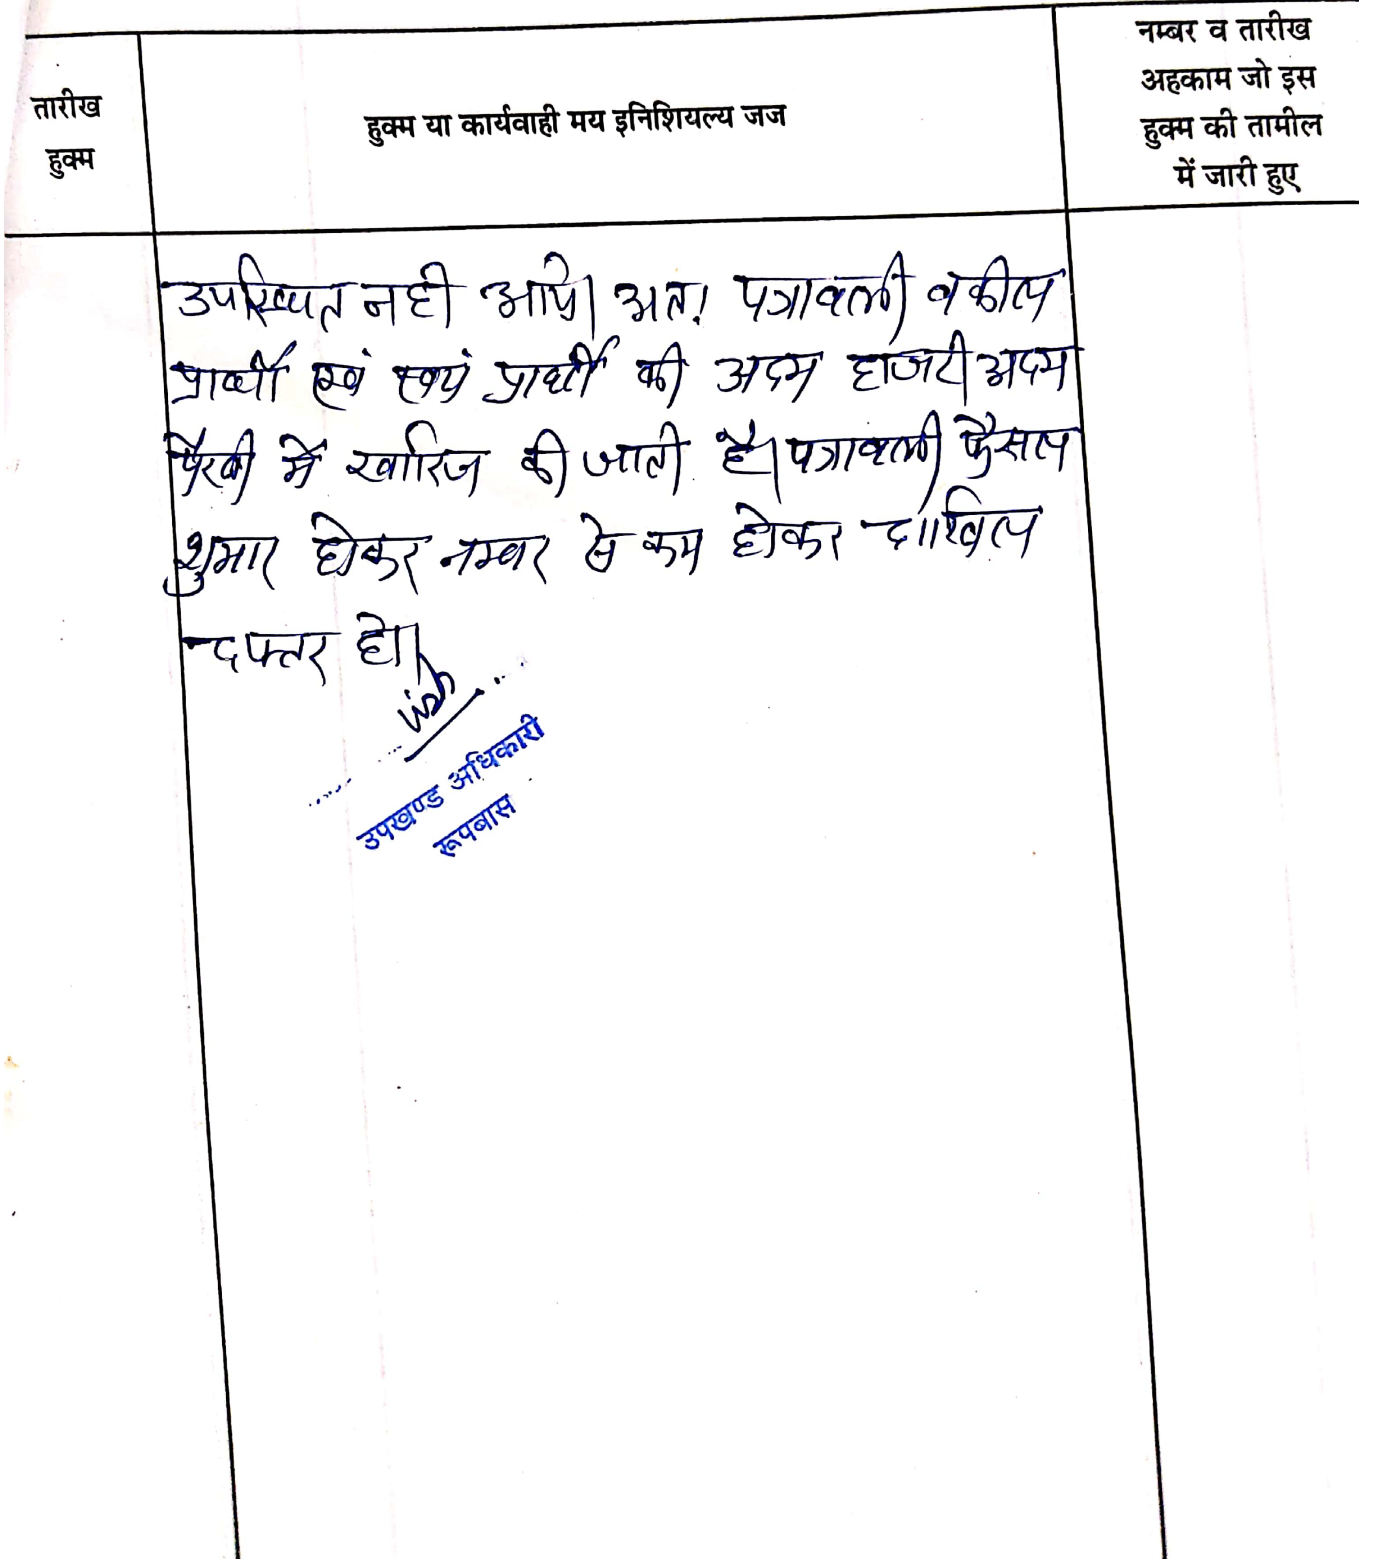 तारीख
हुक्म
हुक्म या कार्यवाही मय इनिशियल्य जज
नम्बर व तारीख
अहकाम जो इस
हुक्म की तामील
में जारी हुए
उपस्थित नही आये। अतः पत्रावली वकील
प्रार्थी एवं स्वयं प्रार्थी की अदम हाजरी अदम
पैरवी में खारिज की जाती है। पत्रावली फैसल
शुमार होकर नम्बर से कम होकर दाखिल
दफ्तर हो।
उपखण्ड अधिकारी
रूपबास